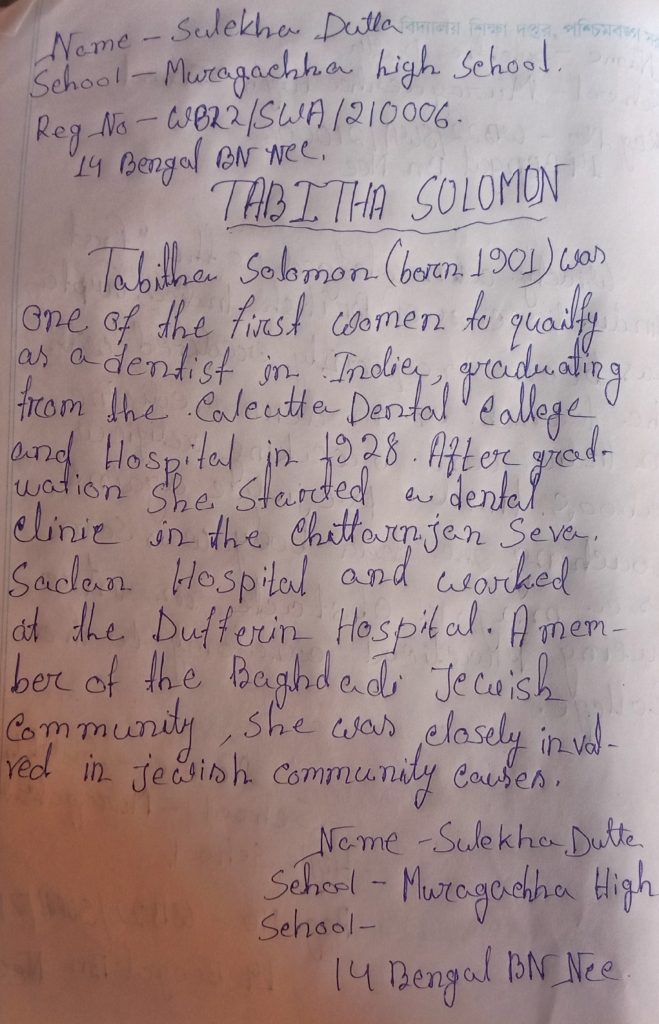 Name - Sulekha Dutta
বিদ্যালয় শিক্ষা দপ্তর, পশ্চিমবঙ্গ
School - Muragachha high School.
Reg No - WB22/SWA/210006.
14 Bengal BN NCC.
TABITHA SOLOMON
Tabitha Solomon (born 1901) was
one of the first women to quailfy
as a dentist in India, graduating
from the Calcutta Dental College
and Hospital in 1928. After grad-
uation she started a dental
clinic in the Chittarnjan Seva.
Sadan Hospital and worked
at the Dufferin Hospital. A mem-
ber of the Baghdadi Jewish
Community, she was closely invol-
ved in jewish community causes.
Name - Sulekha Dutta
School - Muragachha High
School-
14 Bengal BN NCC.